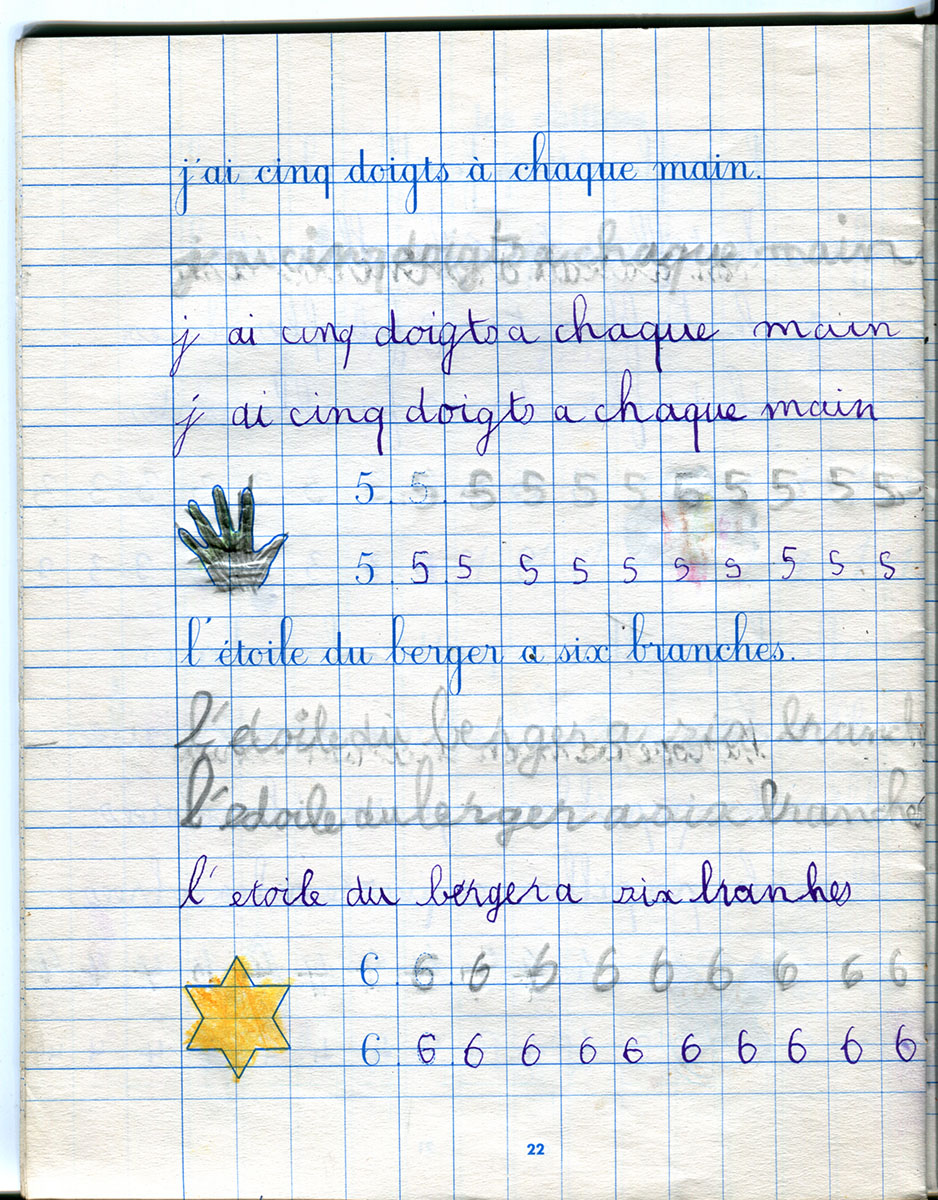 j'ai cinq doigts à chaque main.
main
j ai cinq doigts a chaque main
j ai cinq doigts a chaque main
5 5 5 5 5 5 5 5 5 5 5
5 5 5 5 5 5 5 5 5 5 5
l'étoile du berger a six branches.
l'edoile du berger a six branch
l'edoile du lerger a six branche
l' etoile du berger a six branhes
6 6 6 6 6 6 6 6 6 6
6 6 6 6 6 6 6 6 6 6 6
22